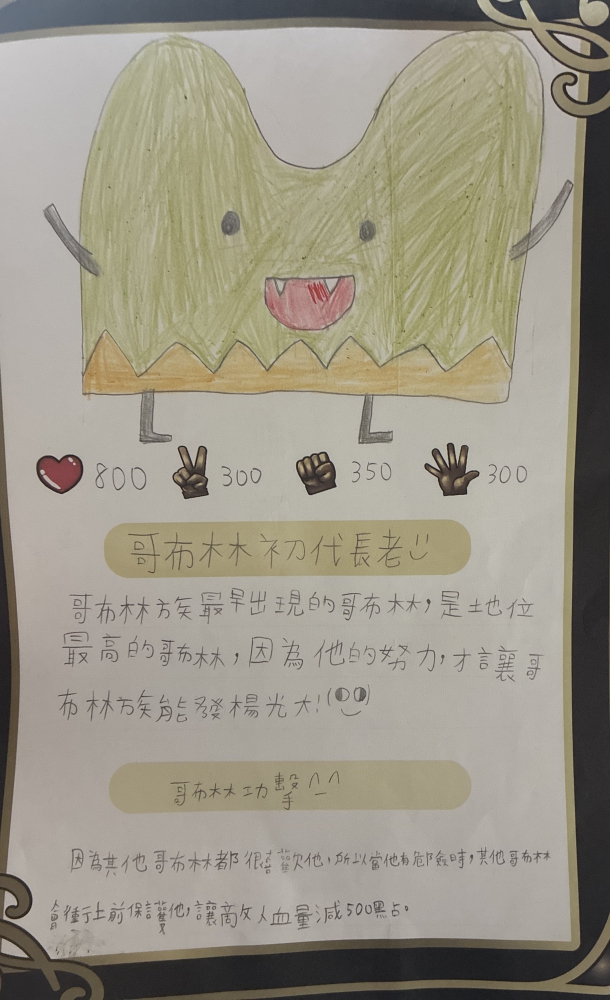 800 300 350 300
哥布林初代長老
哥布林族最早出現的哥布林，是地位
最高的哥布林，因為他的努力，才讓哥
布林族能發楊光大!
哥布林功擊^_^
因為其他哥布林都很喜歡他，所以當他有危險時，其他哥布林
會衝上前保護他，讓敵人血量減500點。